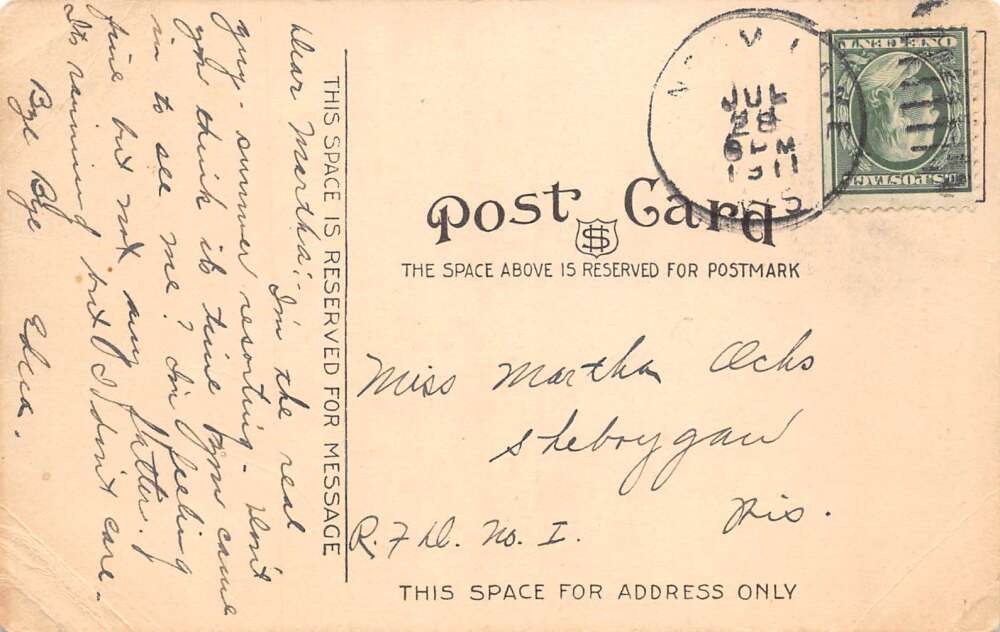 Dear Martha:-
I'm the real
guy - summer resorting - Don't
you think it time you came
in to see me? I'm feeling
fine but not any fatter.
Its raining but I don't care -
Bye Bye
Edna.
THIS SPACE IS RESERVED FOR MESSAGE
JUL
28
6 PM
1911
WIS
U.S. POSTAGE
ONE CENT
Post Card
THE SPACE ABOVE IS RESERVED FOR POSTMARK
Miss Martha Ochs
Sheboygan
Wis.
R.F.D. No. I.
THIS SPACE FOR ADDRESS ONLY